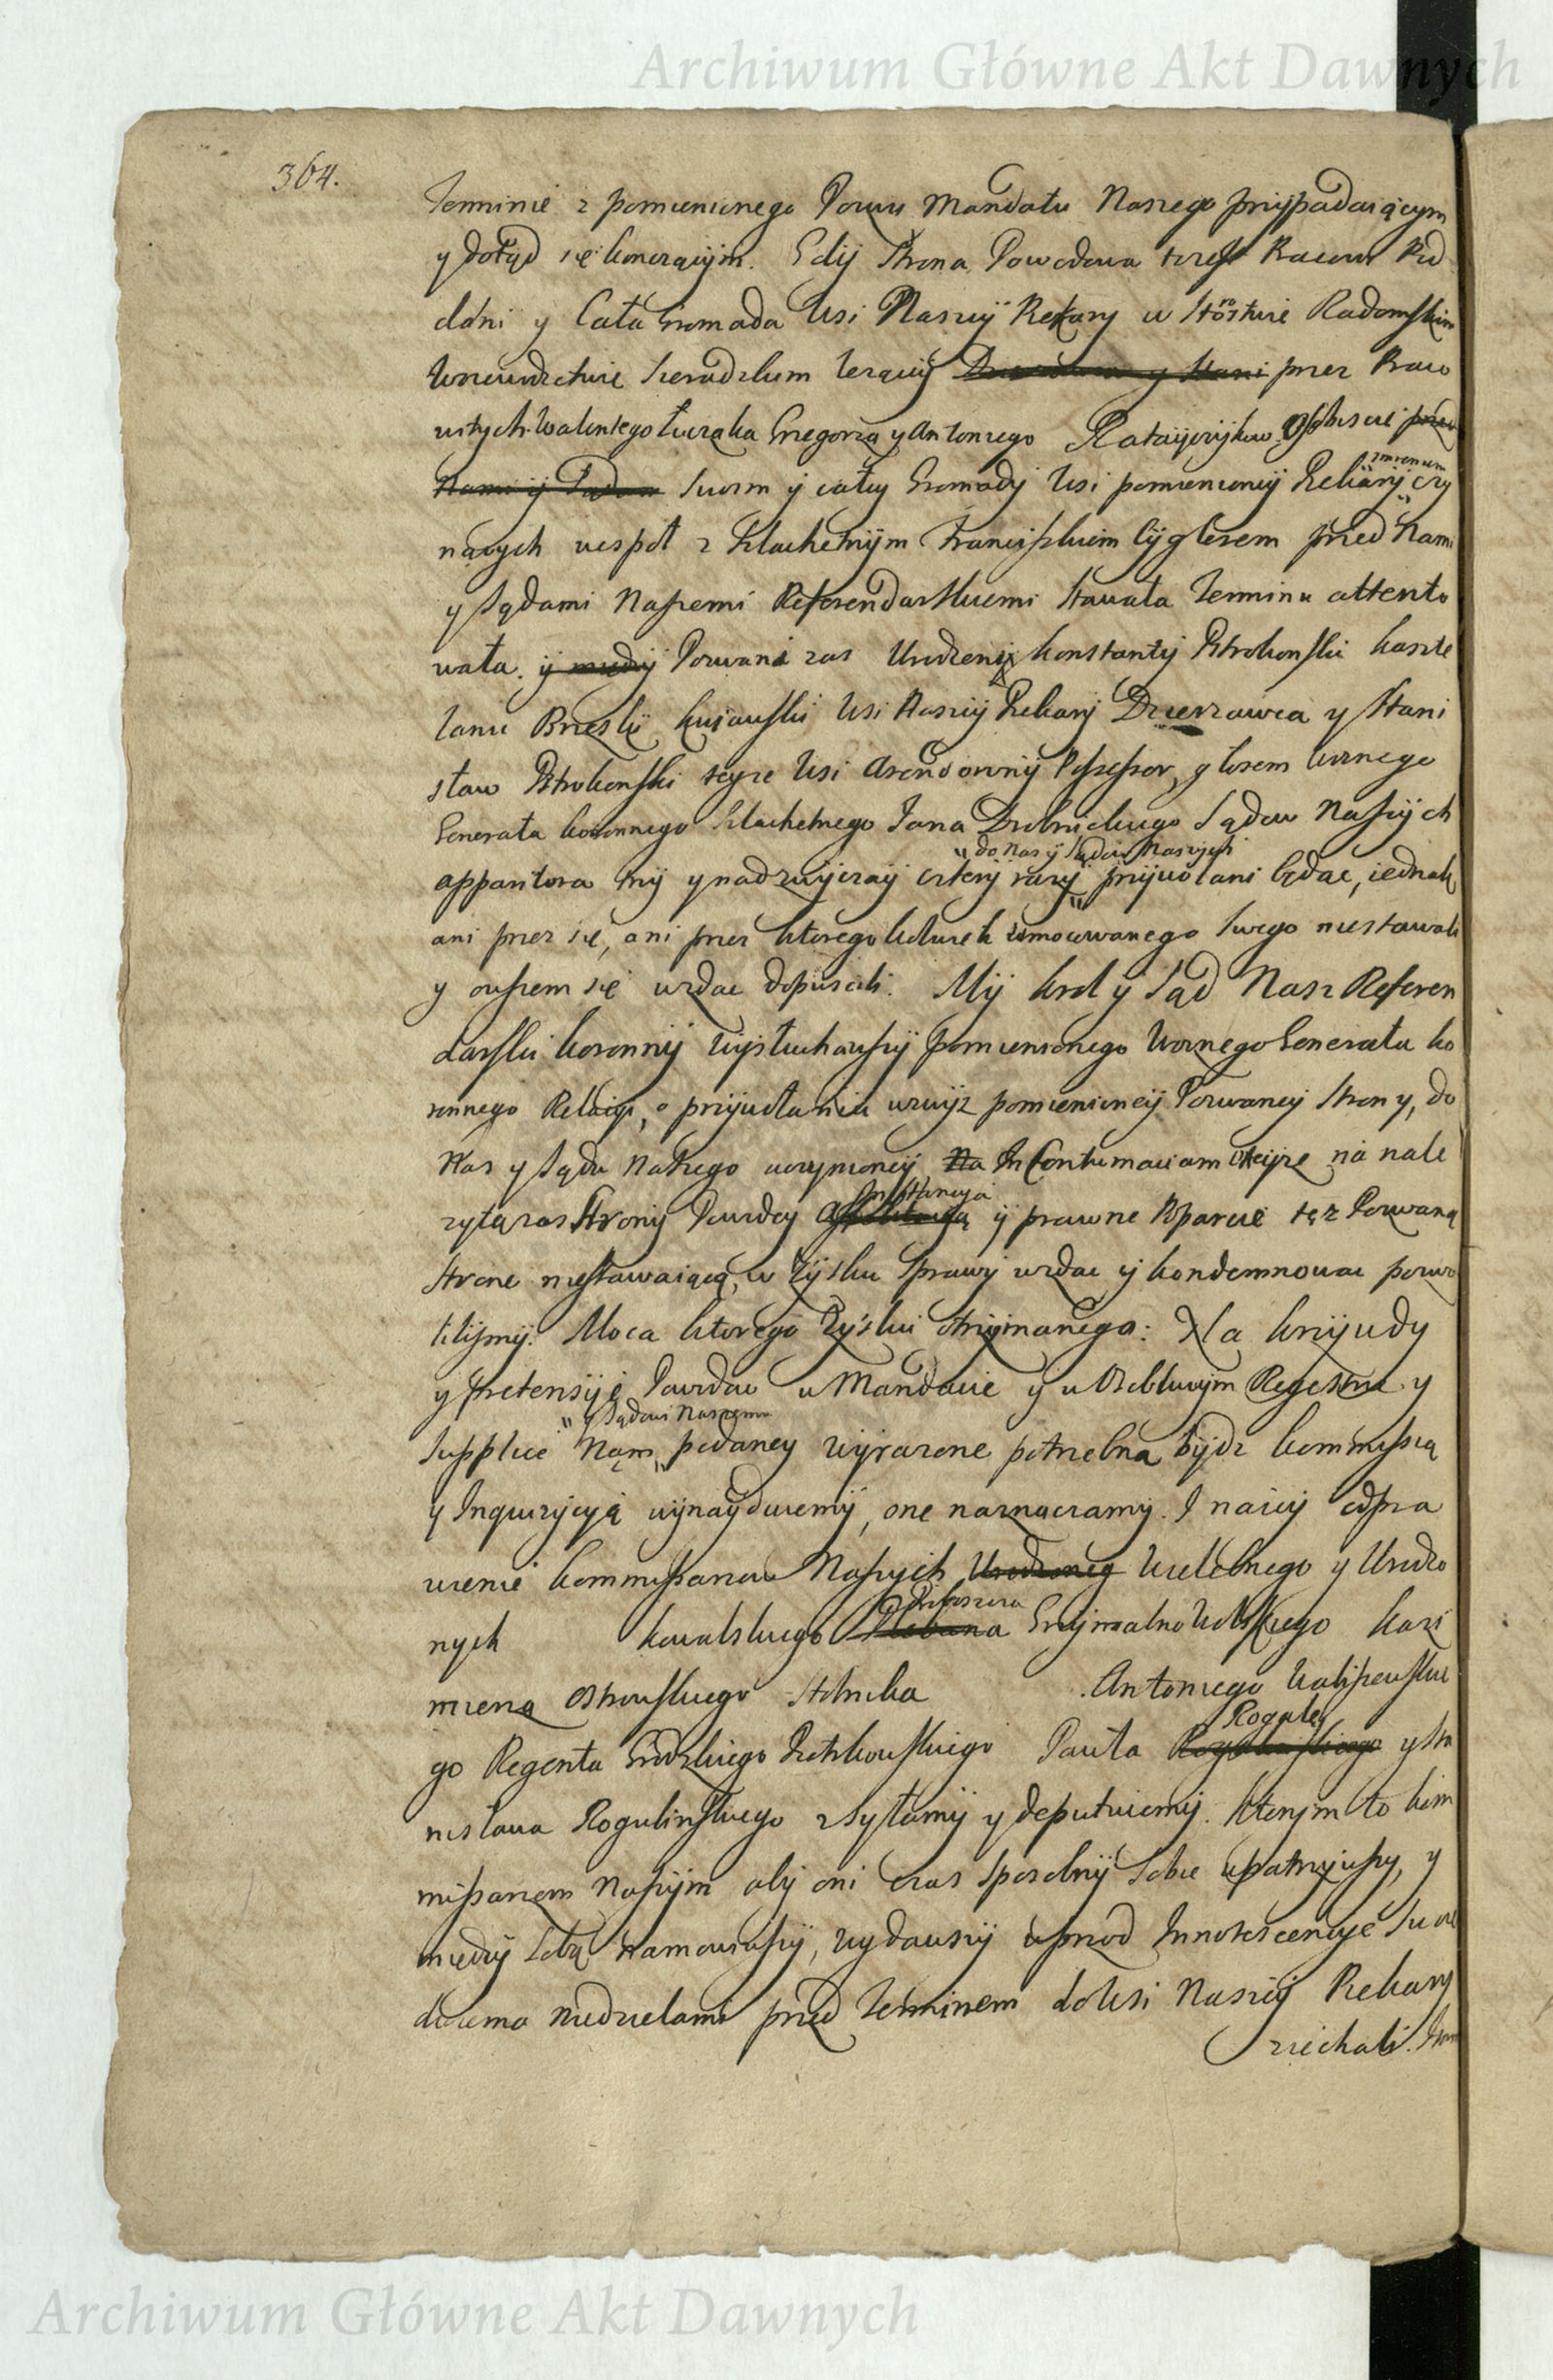 Archiwum Główne Akt Dawnych
364.
Terminie z pomienionego Pozwu Mandatu Naszego przypadaiącym
y dotąd się konczącym. Gdy Strona Powodowa to iest Pracowi Pod
dani y Cała Gromada Wsi Naszey Rekary w Stostwie Radomskim
Woiewodztwie Sieradzkim leżącey przez Praco
witych Walentego Gregorza y Antoniego Ratayczykow Osobiscie przez
Swoim y całey Gromady Wsi pomienioney Rekary imieniem czy
nących wespoł z Szlachetnym Franciszkiem Cyglerem przed Nami
y Sądami Naszemi Referendarskiemi stawała Terminu attento
wała. y Pozwani zas Urodzeni Konstanty Pstrokonski kaszte
lanic Brzesky Kuiawski Wsi Naszey Rekary Dzierzawca y Stani
sław Pstrokonski teyże Wsi Arendowny Possessor, głosem woznego
Generała koronnego Szlachetnego Jana Drobnickiego Sądow Naszych
do Nas y Sądow Naszych
apparitora trzy y nadzwyczay czterij razy przywołani będąc, iednak
ani przez się, ani przez ktorego kolwiek umocowanego swego niestawali
y owszem się wzdac dopuscili. My Krol y Sąd Nasz Referen
darski koronny wysłuchawszy pomienionego Woznego Generała ko
ronnego Relacyi, o przywołaniu wzwyż pomienioney Pozwaney Strony, do
Nas y Sądu Naszego uczynioney Na In Contumaciam teyże na nale
Instancyą
żytą zas Strony Powdcy y prawne Poparcie też Pozwaną
Strone niestawaiącą, w Zysku Sprawy wzdac y kondemnowac pozwo
lilismy. Mocą ktorego Zysku otrzymanego: Na krzywdy
y pretensye Powdow w Mandacie y w Osobliwym Regestrze y
y Sądowi Naszemu
Supplice Nam podaney wyrażone potrzebną bydz kommissią
y Inquizycyą wynayduiemy, one naznaczamy. I na iey odpra
wienie kommissarzow Naszych Urodzoneg Wielebnego y Urodzo
Proboszcza
nych Kowalskiego Plebana Grzymalno Wolskiego Kazi
mierza Ostrowskiego Stolnika Antoniego Kaliszewskie
Rogalę
go Regenta Grodzkiego Piotrkowskiego Pawła y Sta
nisława Rogulinskiego zsyłamy y deputuiemy. Ktorym to kom
missarzom Naszym aby oni czas sposobny sobie upatrzywszy, y
między sobą namowiwszy, wydawszy wprzod Innotescencye swoie
dwiema niedzielami przed Terminem do Wsi Naszey Rekary
ziechali.
Archiwum Główne Akt Dawnych